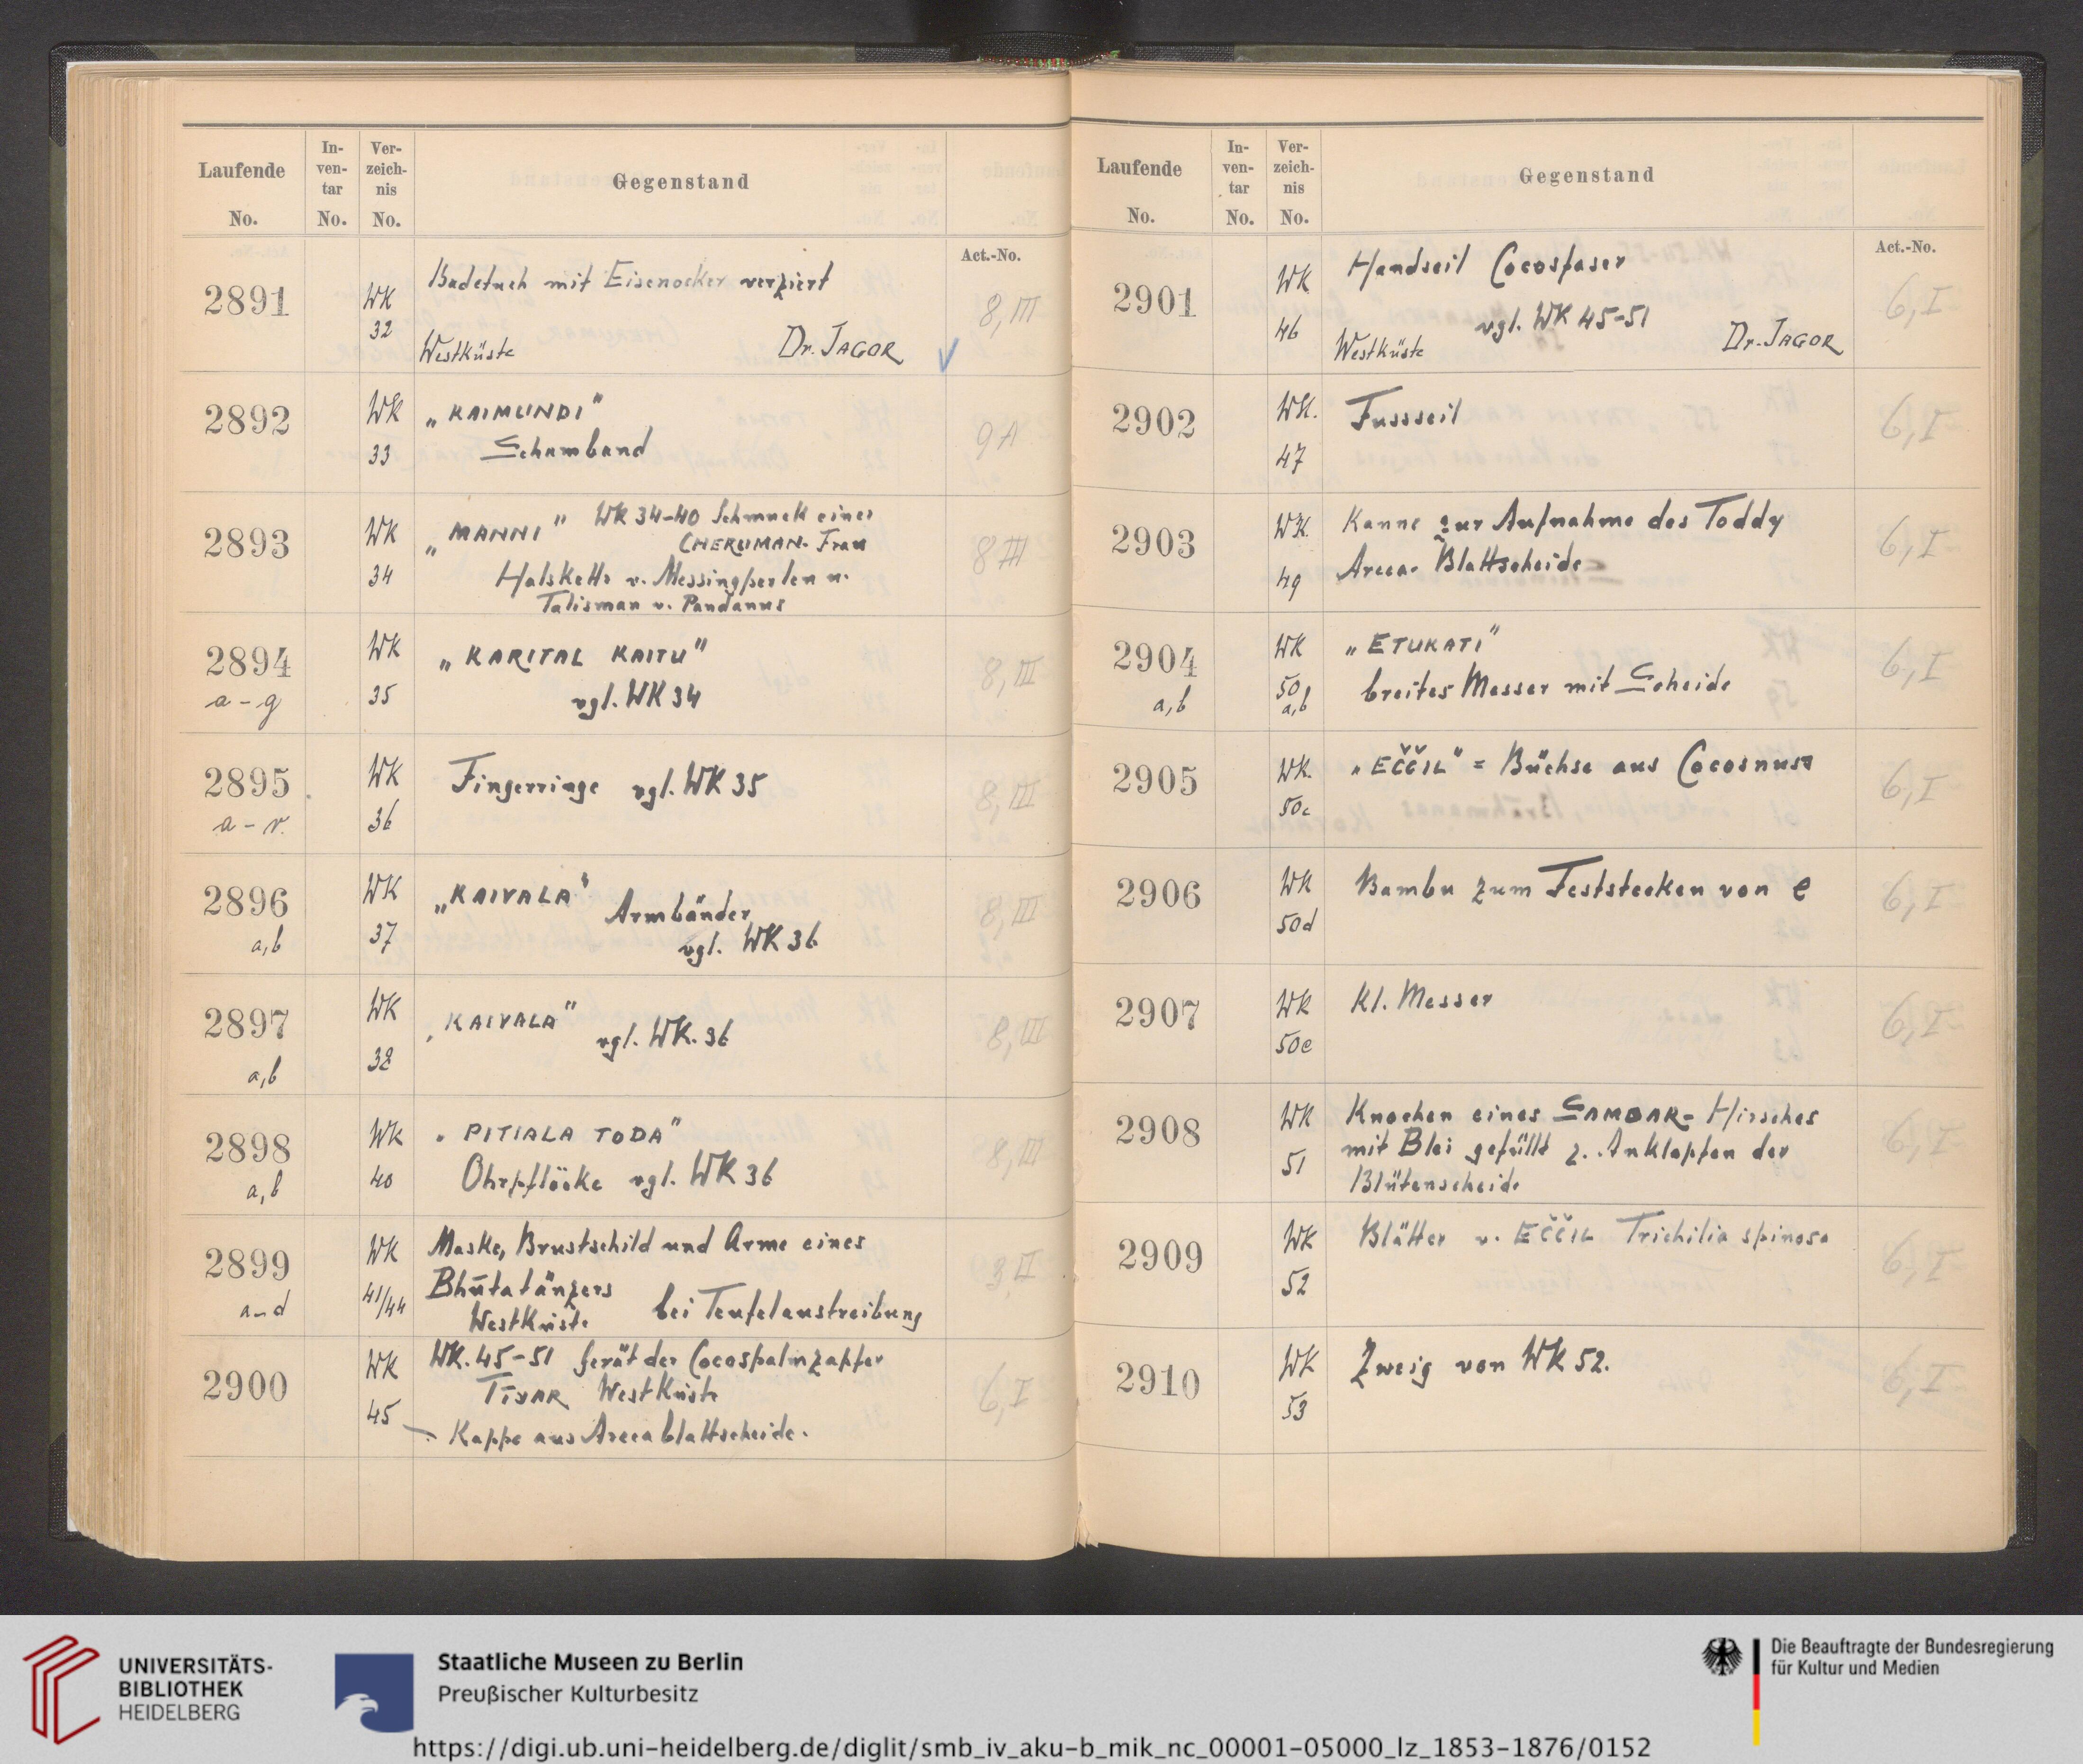 Laufende No.
In-ven-tar No.
Ver-zeich-nis No.
Gegenstand
Act.-No.
2891
WK 32
Badetuch mit Eisenocker verziert
Westküste Dr. JAGOR
8, III
2892
WK 33
„KAIMUNDI"
Schamband
9A
2893
WK 34
„MANNI" WK 34-40 Schmuck einer
CHERUMAN-Frau
Halskette v. Messingperlen u.
Talisman v. Pandanus
8 III
2894
a-g
WK 35
„KARITAL KAITU"
vgl. WK 34
8, III
2895
a-v.
WK 36
Fingerringe vgl. WK 35
8, III
2896
a,b
WK 37
„KAIVALA"
Armbänder
vgl. WK 36
8, III
2897
a,b
WK 38
„KAIVALA"
vgl. WK. 36
8, III
2898
a,b
WK 40
„PITIALA TODA"
Ohrpflöcke vgl. WK 36
8, III
2899
a-d
WK 41/44
Maske, Brustschild und Arme eines
Bhūtatänzers
Westküste bei Teufelaustreibung
3, II
2900
WK 45
WK. 45-51 Gerät der Cocospalmzapfer
TĪYAR Westküste
Kappe aus Arecablattscheide.
6, I
Laufende No.
In-ven-tar No.
Ver-zeich-nis No.
Gegenstand
Act.-No.
2901
WK 46
Handseil Cocosfaser
vgl. WK 45-51
Westküste Dr. JAGOR
6, I
2902
WK. 47
Fussseil
6, I
2903
WK. 49
Kanne zur Aufnahme des Toddy
Areca-Blattscheide
6, I
2904
a,b
WK 50 a,b
„ETUKATI"
breites Messer mit Scheide
6, I
2905
WK. 50c
„EČČIL" = Büchse aus Cocosnuss
6, I
2906
WK 50d
Bambu zum Feststecken von e
6, I
2907
WK 50e
Kl. Messer
6, I
2908
WK 51
Knochen eines SAMBAR-Hirsches
mit Blei gefüllt z. Anklopfen der
Blütenscheide
6, I
2909
WK 52
Blätter v. EČČIL Trichilia spinosa
6, I
2910
WK 53
Zweig von WK 52.
6, I
UNIVERSITÄTS-
BIBLIOTHEK
HEIDELBERG
Staatliche Museen zu Berlin
Preußischer Kulturbesitz
Die Beauftragte der Bundesregierung
für Kultur und Medien
https://digi.ub.uni-heidelberg.de/diglit/smb_iv_aku-b_mik_nc_00001-05000_lz_1853-1876/0152